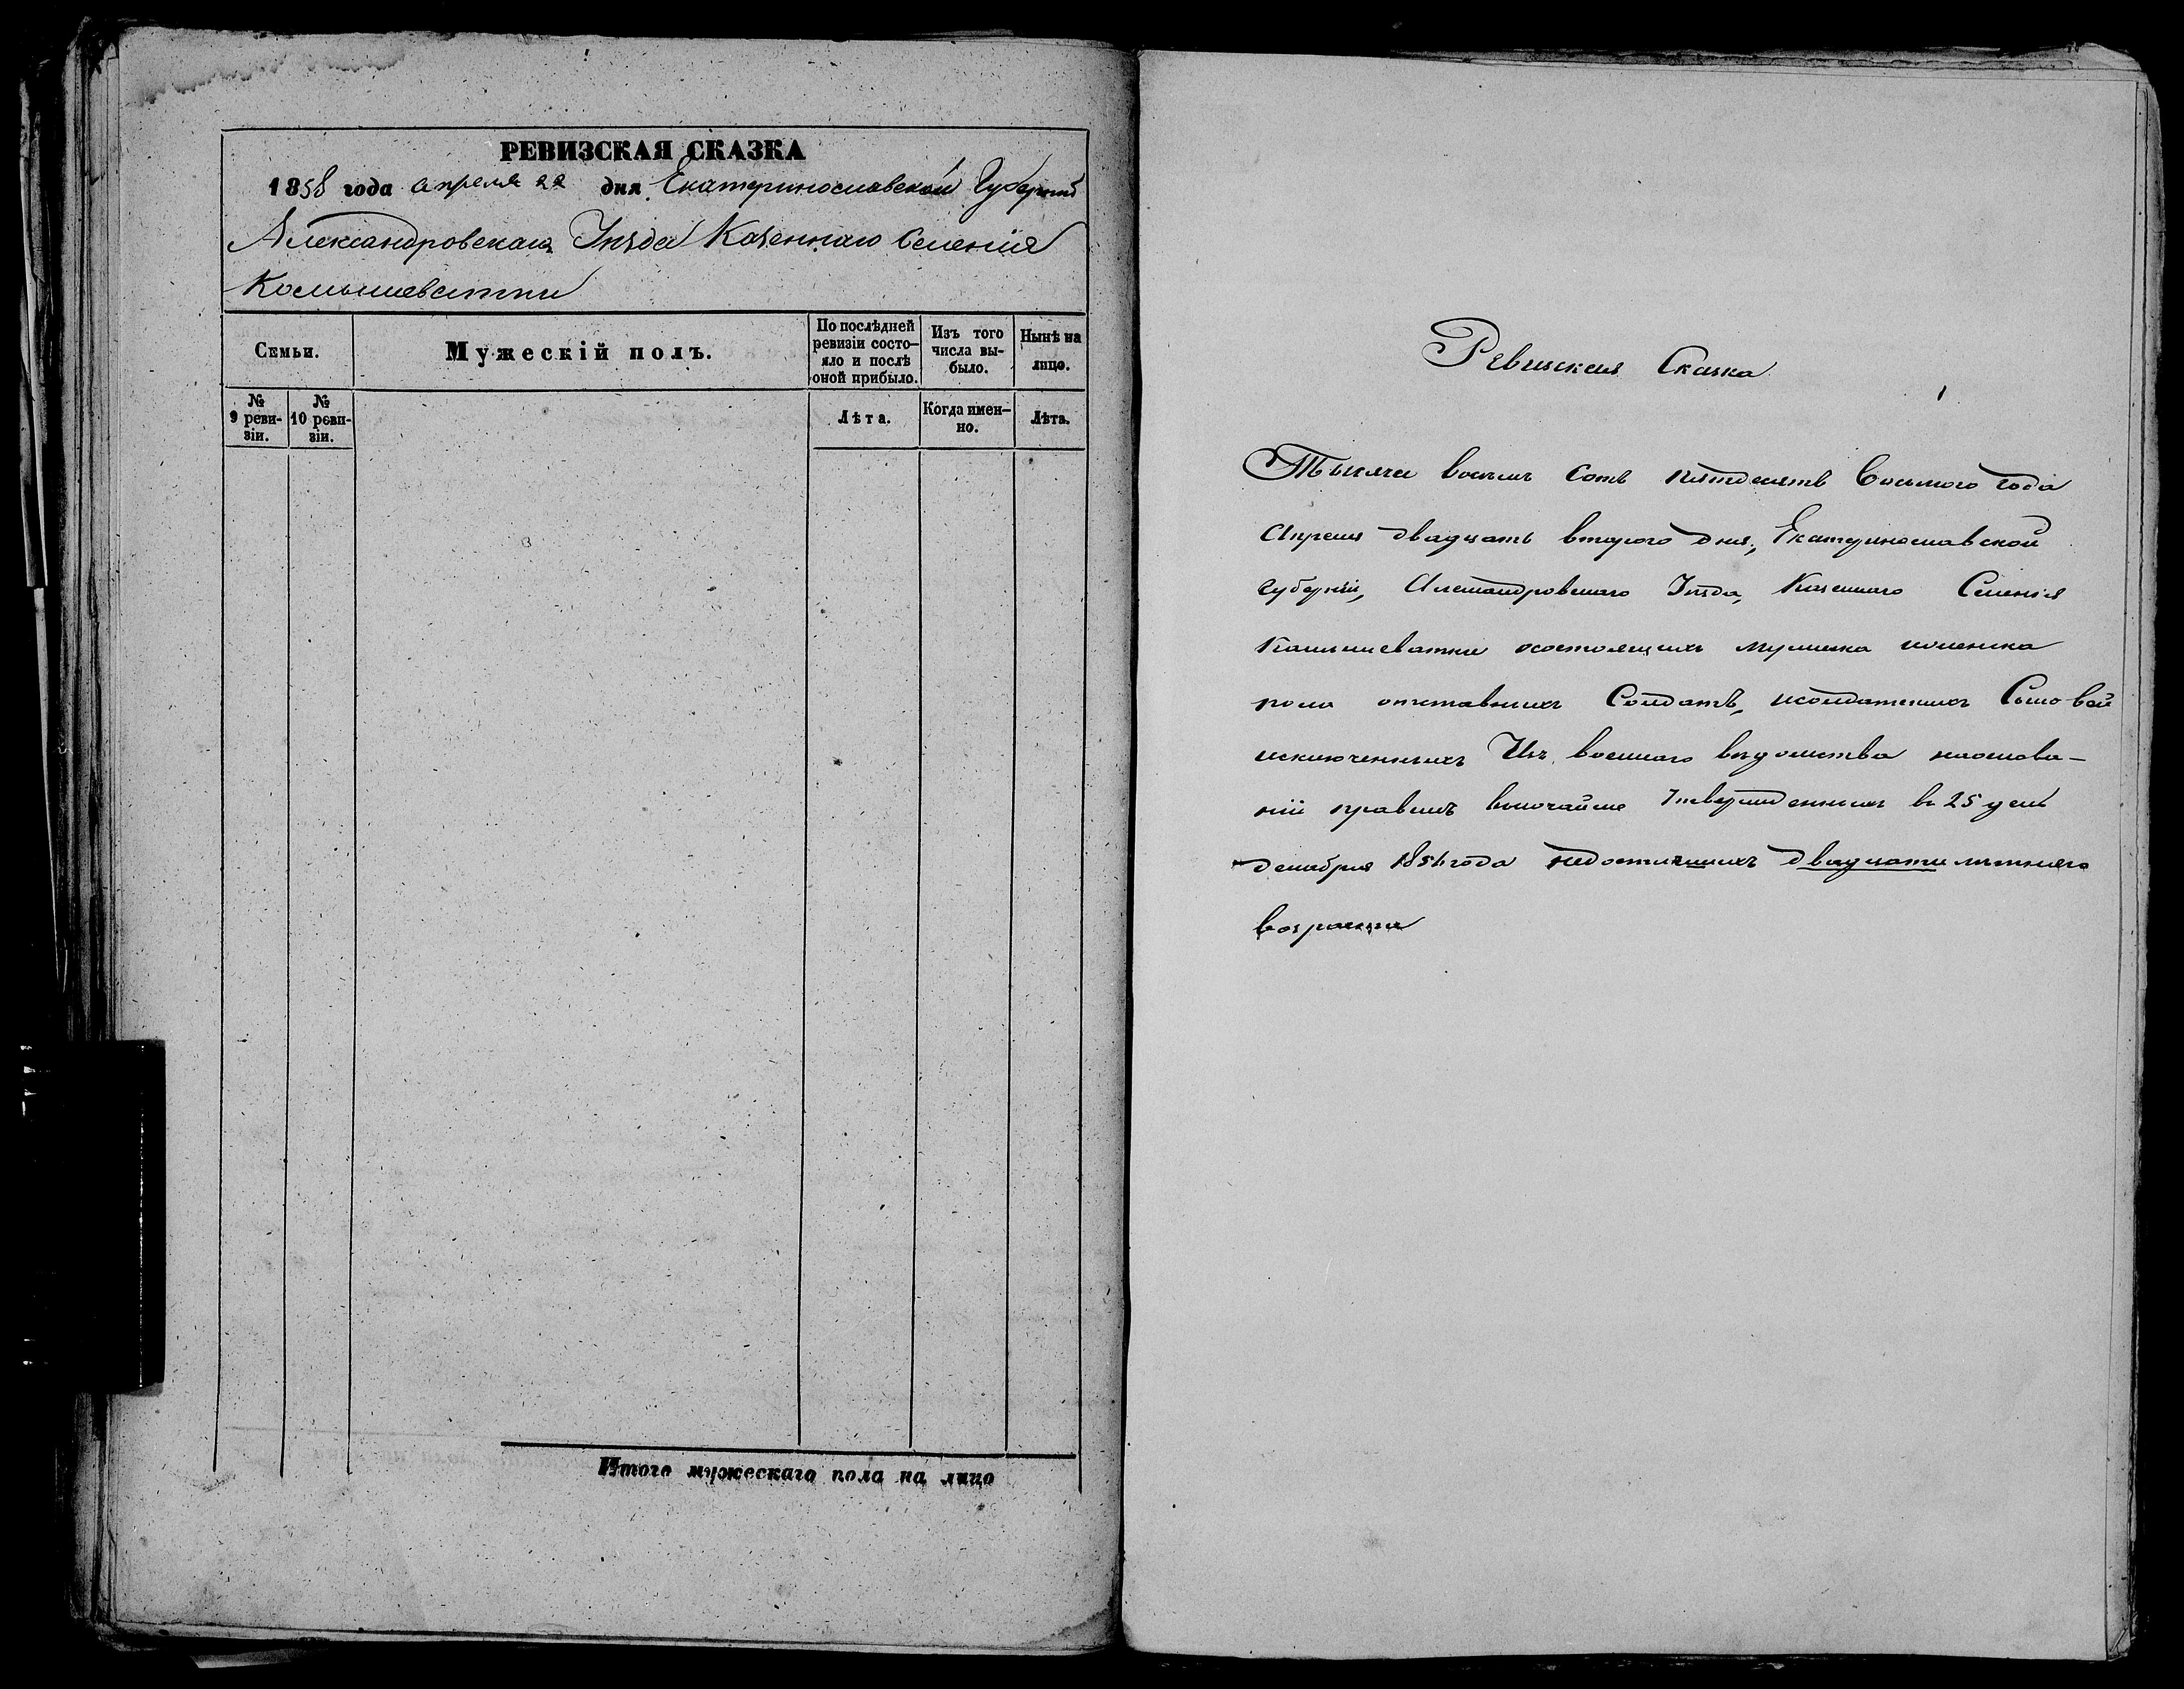 РЕВИЗСКАЯ СКАЗКА
1858 года апреля 22 дня Екатеринославской Губерніи
Александровскаго Уѣзда Казеннаго Селенія
Комышеватки
Семьи.
Мужескій полъ.
По послѣдней ревизіи состо-
яло и послѣ
оной прибыло.
Изъ того
числа вы-
было.
Нынѣ на
лицо.
№
9 реви-
зіи.
№
10 реви-
зіи.
Лѣта.
Когда имен-
но.
Лѣта.
Итого мужескаго пола на лицо
Ревизская Сказка
1
Тысяча восемь сотъ пятдесятъ Восьмого года
Апреля двадцать второго дня, Екатеринославской
Губерніи, Александровскаго Уѣзда, Казеннаго Селенія
Камышеватки состоящихъ мужеска иженска
пола отставныхъ Солдатъ, исолдатскихъ Сыновей
исключенныхъ Изъ военнаго вѣдомства наоснова-
ніи правилъ высочайше Утвержденныхъ въ 25 день
декабря 1856 года недостигшихъ двадцати лѣтняго
возраста